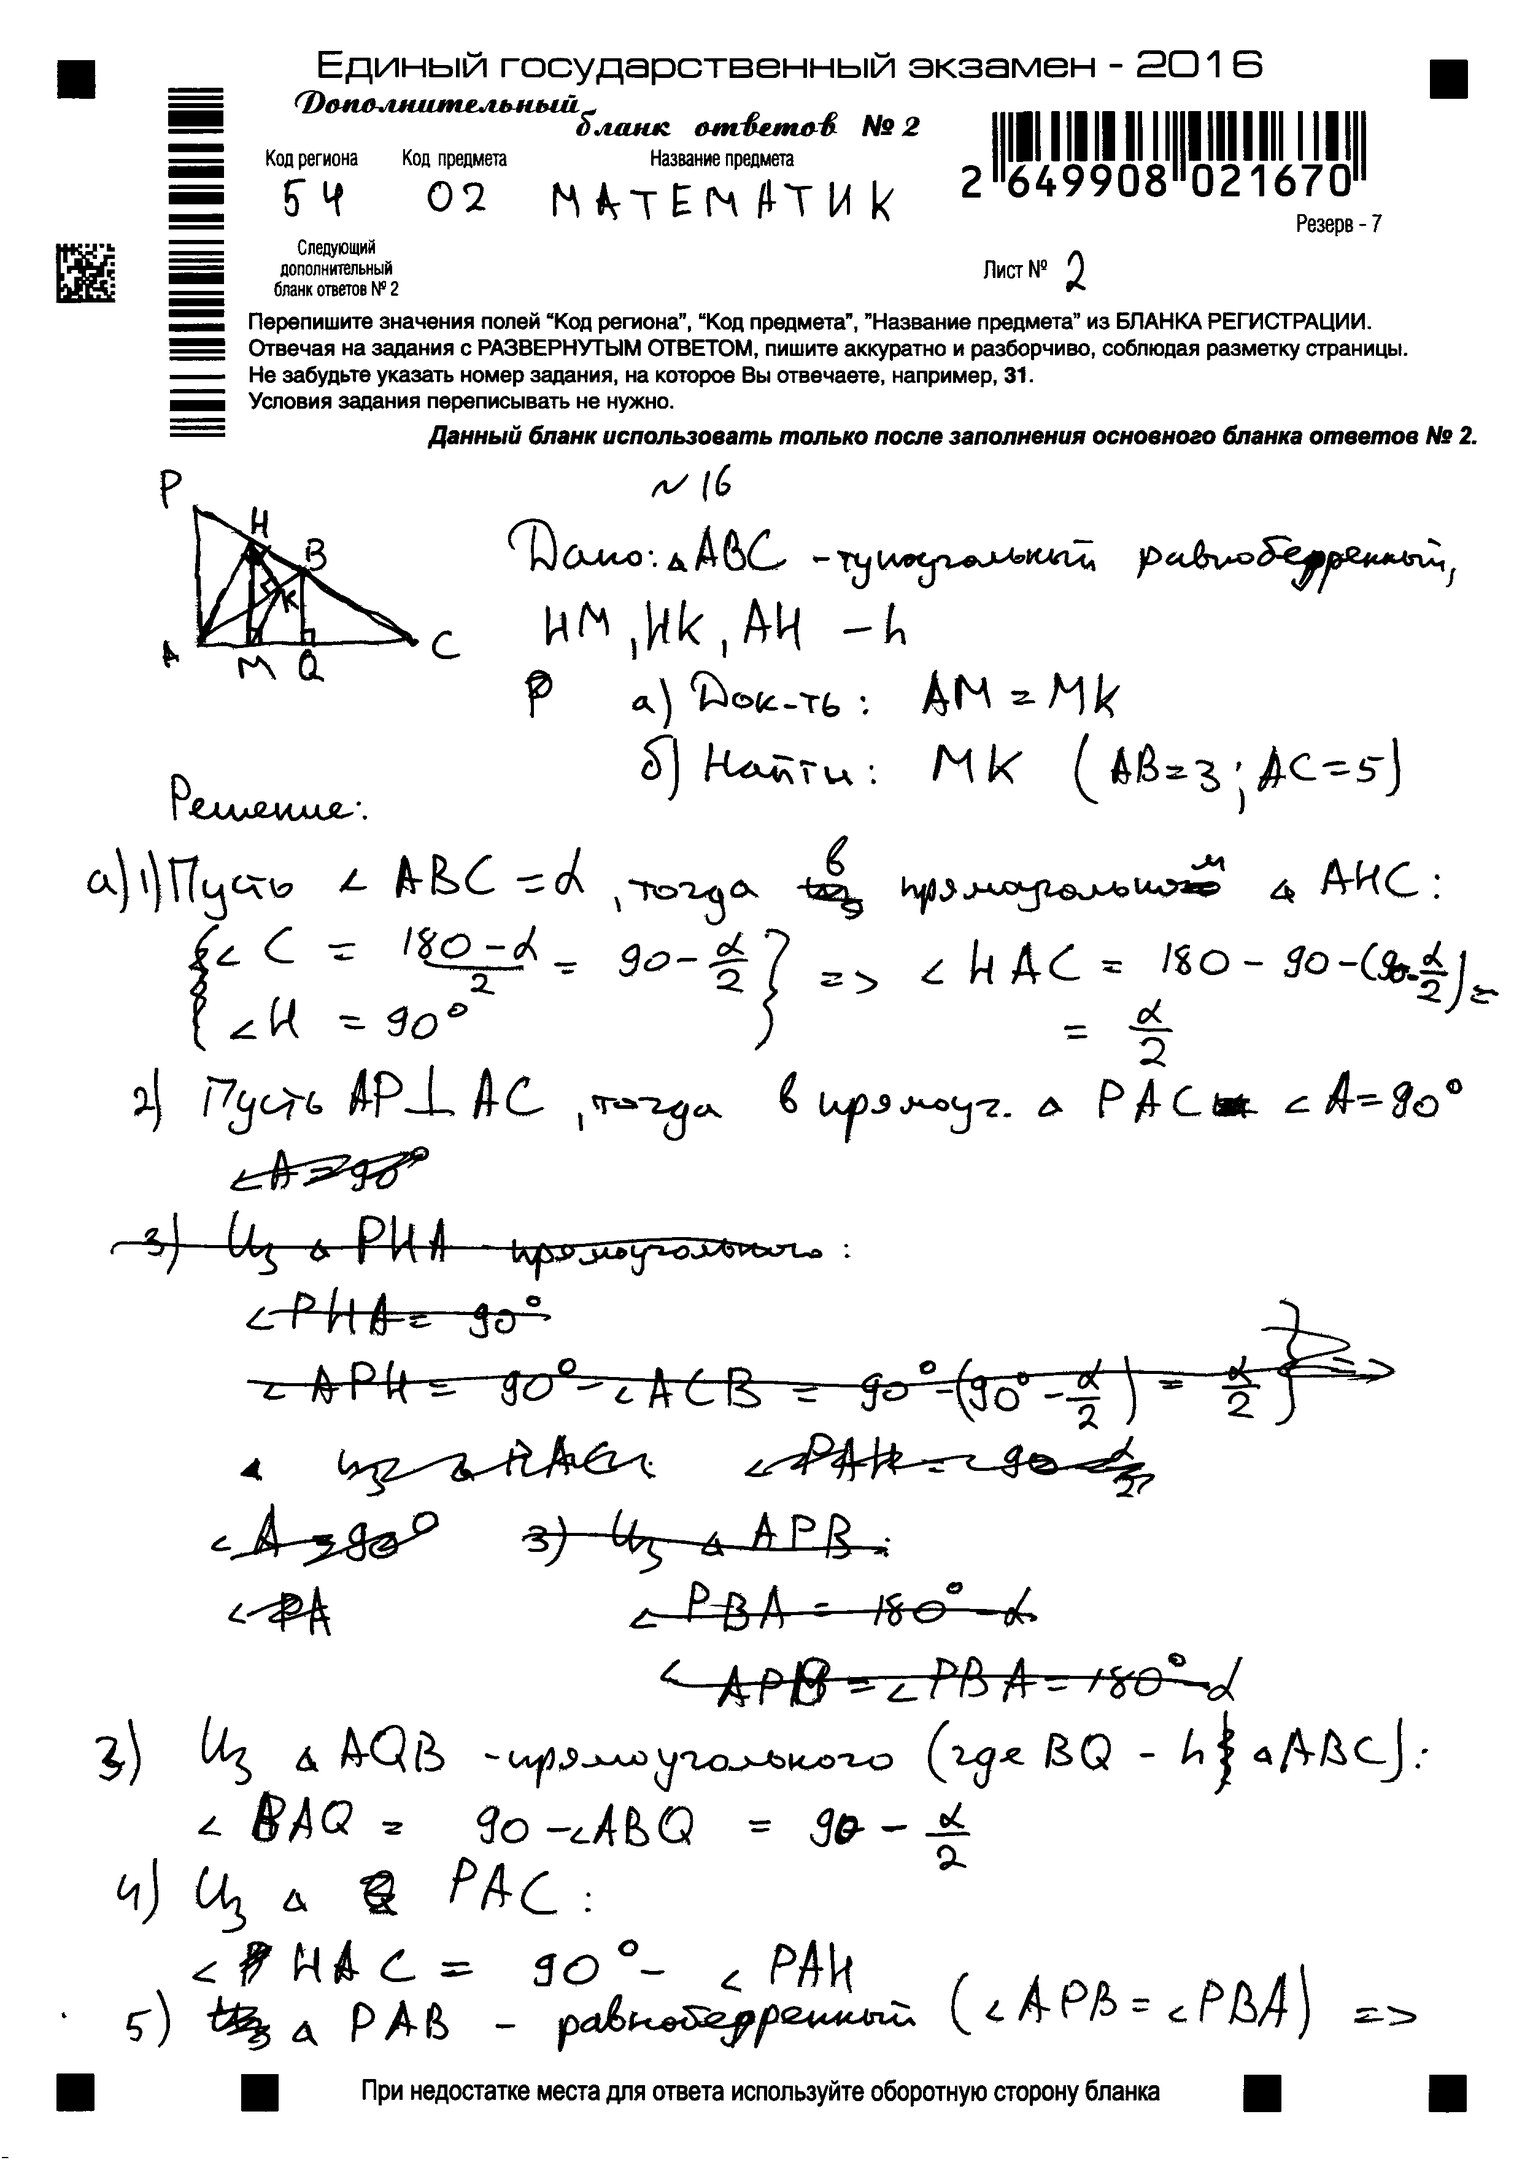 Единый государственный экзамен - 2016
Дополнительный
бланк ответов № 2
Код региона Код предмета Название предмета
54 02 МАТЕМАТИК
2 649908 021670
Резерв - 7
Следующий
дополнительный
бланк ответов № 2
Лист № 2
Перепишите значения полей “Код региона”, “Код предмета”, ”Название предмета” из БЛАНКА РЕГИСТРАЦИИ.
Отвечая на задания с РАЗВЕРНУТЫМ ОТВЕТОМ, пишите аккуратно и разборчиво, соблюдая разметку страницы.
Не забудьте указать номер задания, на которое Вы отвечаете, например, 31.
Условия задания переписывать не нужно.
Данный бланк использовать только после заполнения основного бланка ответов № 2.
P H B K A M Q C
~16
Дано: △ABC - тупоугольный равнобедренный,
HM, HK, AH - h
P а) Док-ть: AM = MK
б) Найти: MK (AB=3; AC=5)
Решение:
а) 1) Пусть ∠ ABC = α, тогда в прямоугольном △ AHC:
{∠ C = (180 - α)/2 = 90 - α/2
∠H = 90°} => ∠ HAC = 180 - 90 - (90 - α/2) =
= α/2
2) Пусть AP ⊥ AC, тогда в прямоуг. △ PAC ∠ A = 90°
∠A = 90°
3) Из △ PHA - прямоугольного:
∠ PHA = 90°
∠ APH = 90° - ∠ ACB = 90° - (90° - α/2) = α/2 } =>
из △ HAC: ∠ PAH = 90 - α/2
∠ A = 90° 3) Из △ APB:
∠ PA ∠ PBA = 180° - α
∠ APB = ∠ PBA = 180° - α
3) Из △ AQB - прямоугольного (где BQ - h △ ABC):
∠ BAQ = 90 - ∠ABQ = 90 - α/2
4) Из △ PAC:
∠ HAC = 90° - ∠ PAH
5) △ PAB - равнобедренный (∠ APB = ∠ PBA) =>
При недостатке места для ответа используйте оборотную сторону бланка